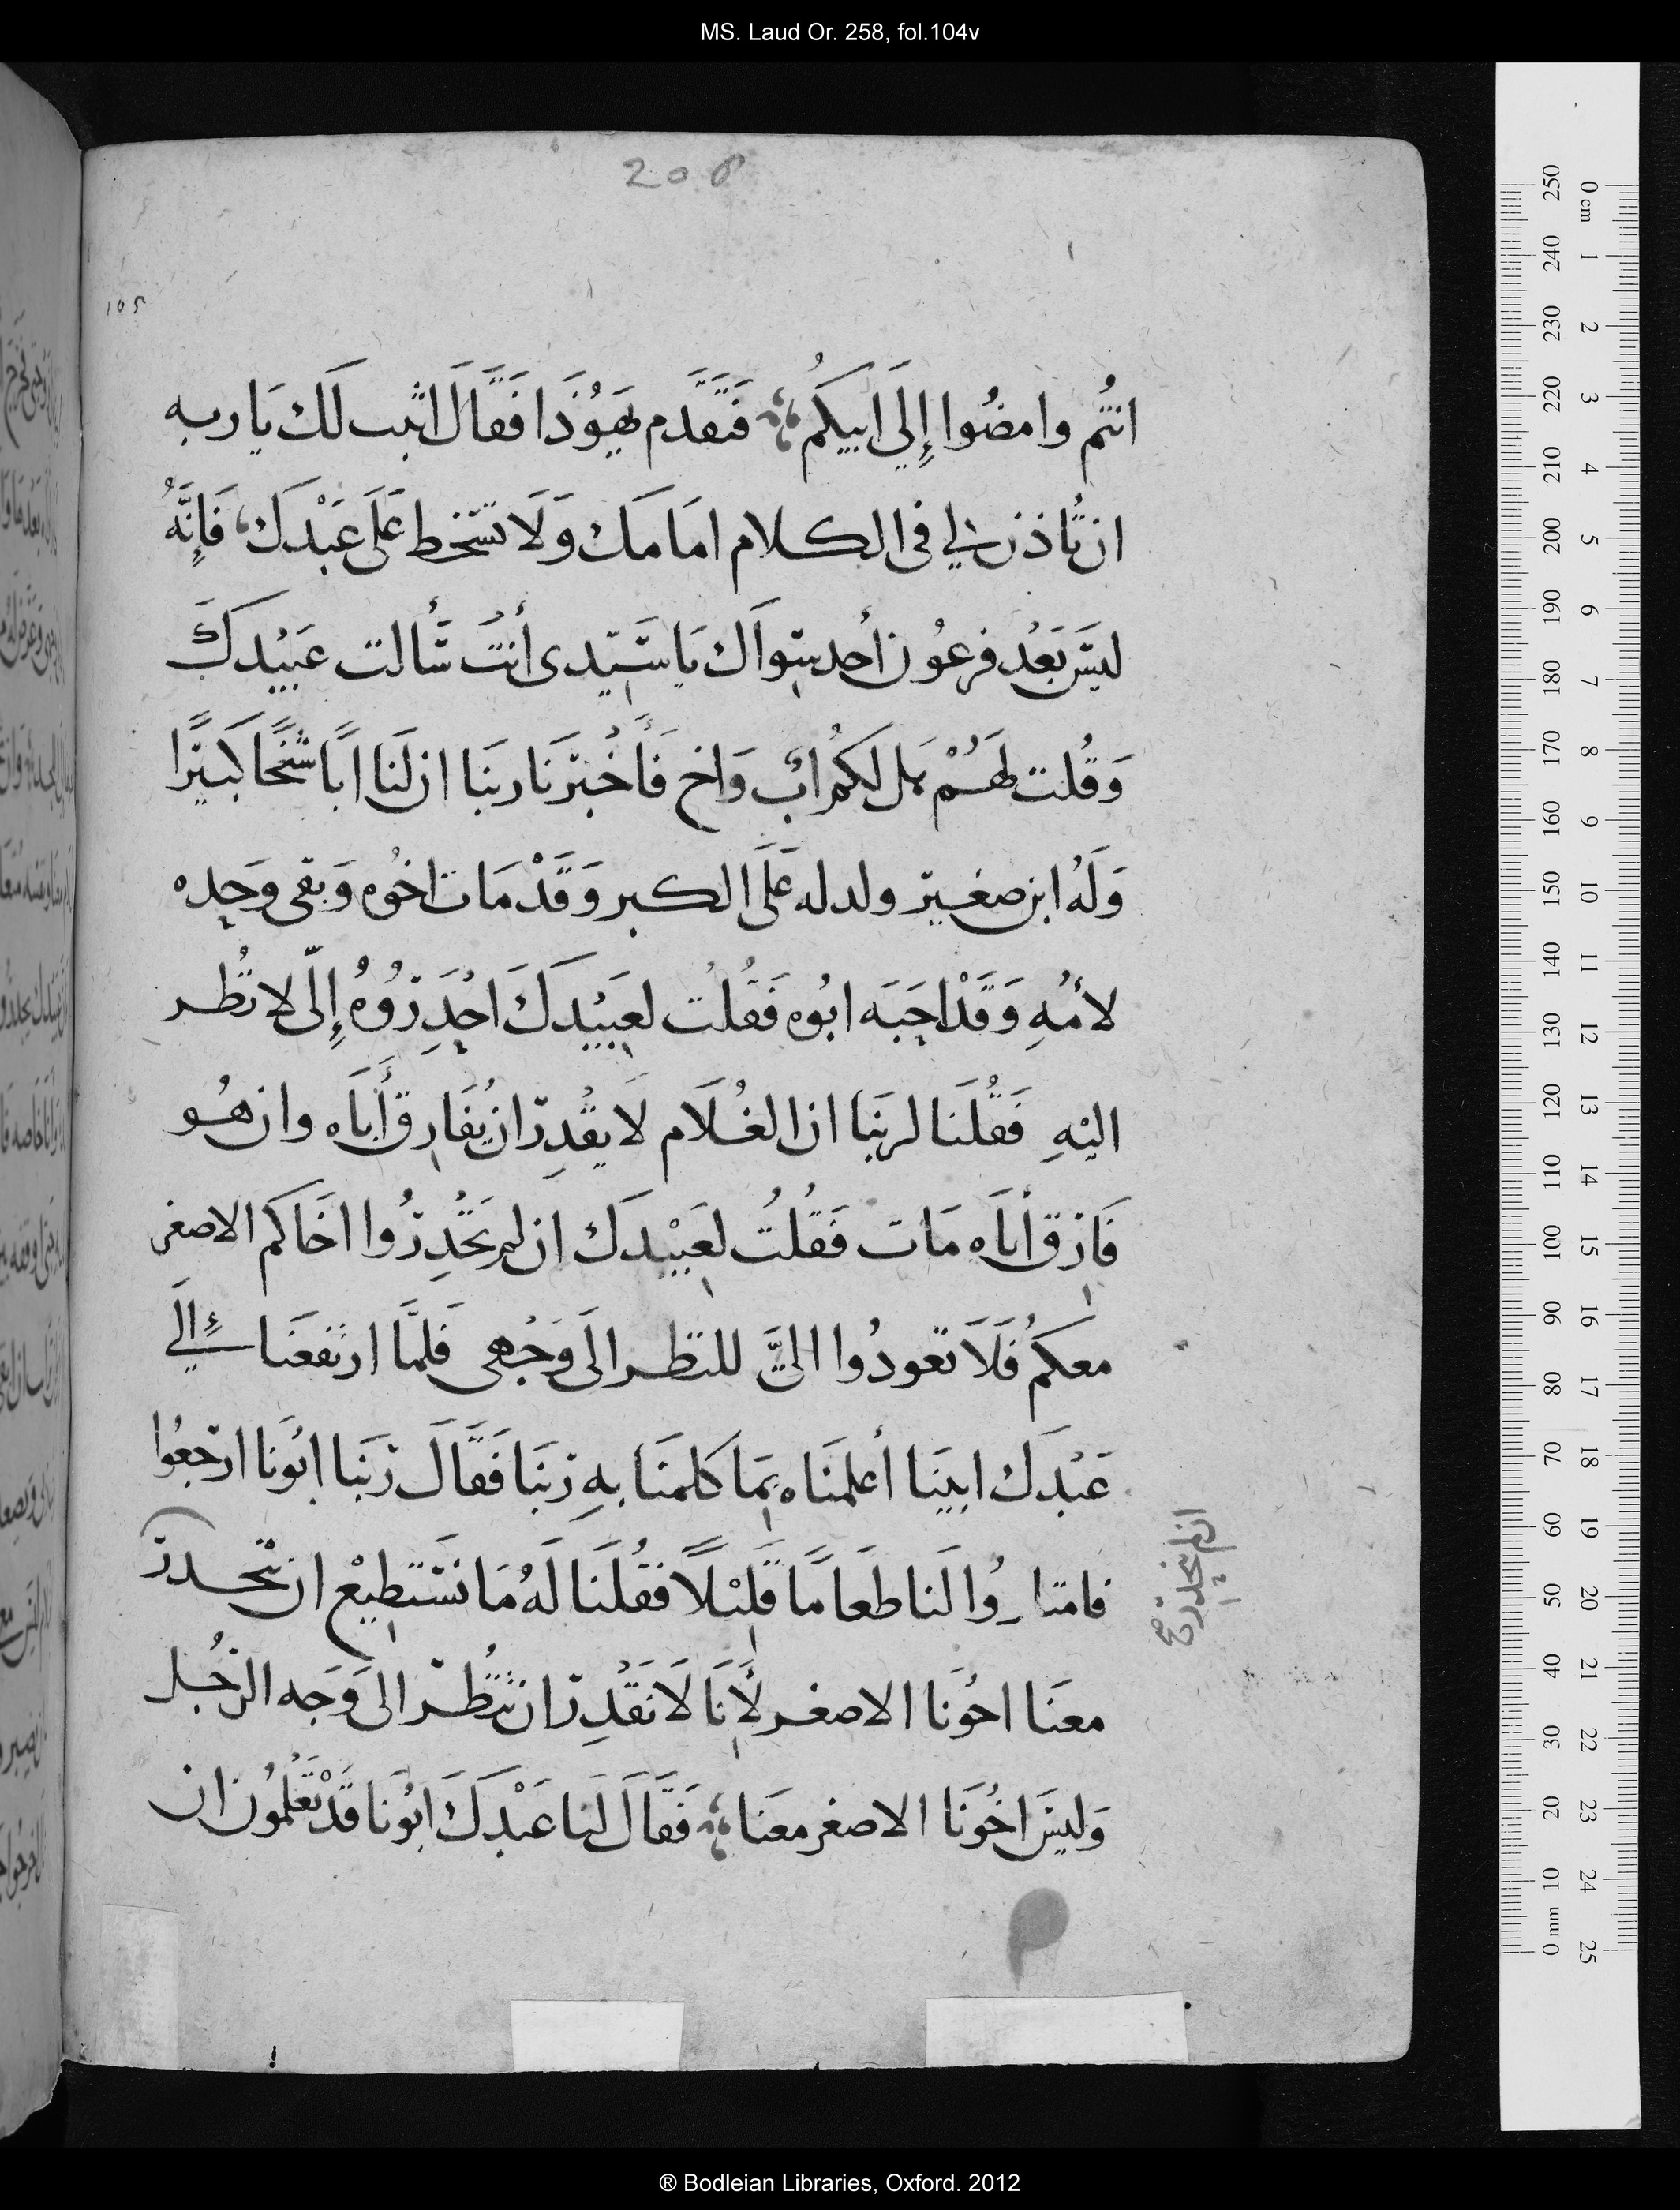 MS. Laud Or. 258, fol.104v
208
105
انتُم وامضُوا إِلَى ابيكُم فَتَقَدَّم يَهُوذَا فَقَالَ اثبت لَك يَا ربه
ان تَاذن لي في الكلام امَامَك وَلَا تسخط عَلَى عَبْدَك فَإِنَّهُ
ليسَ بَعْد فرعُون أحد سِوَاك يَا سَيّدى أَنتَ سَألت عَبِيْدكَ
وَقُلت لهَُمْ هَل لَكُم ابٌ وَاخ فَأَخْبَرنَا ربنَا ان لَنَا ابًا شَيخًا كَبيرًا
وَلَهُ ابن صغير ولد له عَلَى الكبر وَقَدْ مَات اخُوه وَبقى وَحِده
لأمُهِ وَقَدْ احَبَه ابُوه فَقُلْت لعَبِيْدكَ احْدِرُوهُ إِلىّ لانظُر
اليْهِ فَقُلنَا لربنَا ان الغُلَام لَا يقْدِر ان يُفَارِق أَبَاه وان هُو
فَارق أبَاه مَات فَقُلتُ لعَبِيْدَك ان لم تحْدِرُوا اخَاكم الاصغر
معكُم فَلَا تعودُوا الىَّ للنظر الَى وَجْهى فَلمَّا ارتفعنَا إِلَي
عَبْدَك ابينَا أعلمنَاه بِمَا كَلمنَا بهِ رَبنَا فَقَالَ رَبنَا ابُونَا ارْجعُوا
فامتارُوا لَنا طعَامًا قَلِيْلًا فقُلنَا لَهُ مَا نسْتَطِيعْ ان نْحدر
معنَا اخُونَا الاصغر لِأَنَا لَا نَقْدِر ان ننْظُر الى وَجه الرجُل
وَليسَ اخُونَا الاصغر معَنا فَقَالَ لنا عَبْدَكَ ابُونَا قَدْ تَعْلمُون ان
® Bodleian Libraries, Oxford. 2012